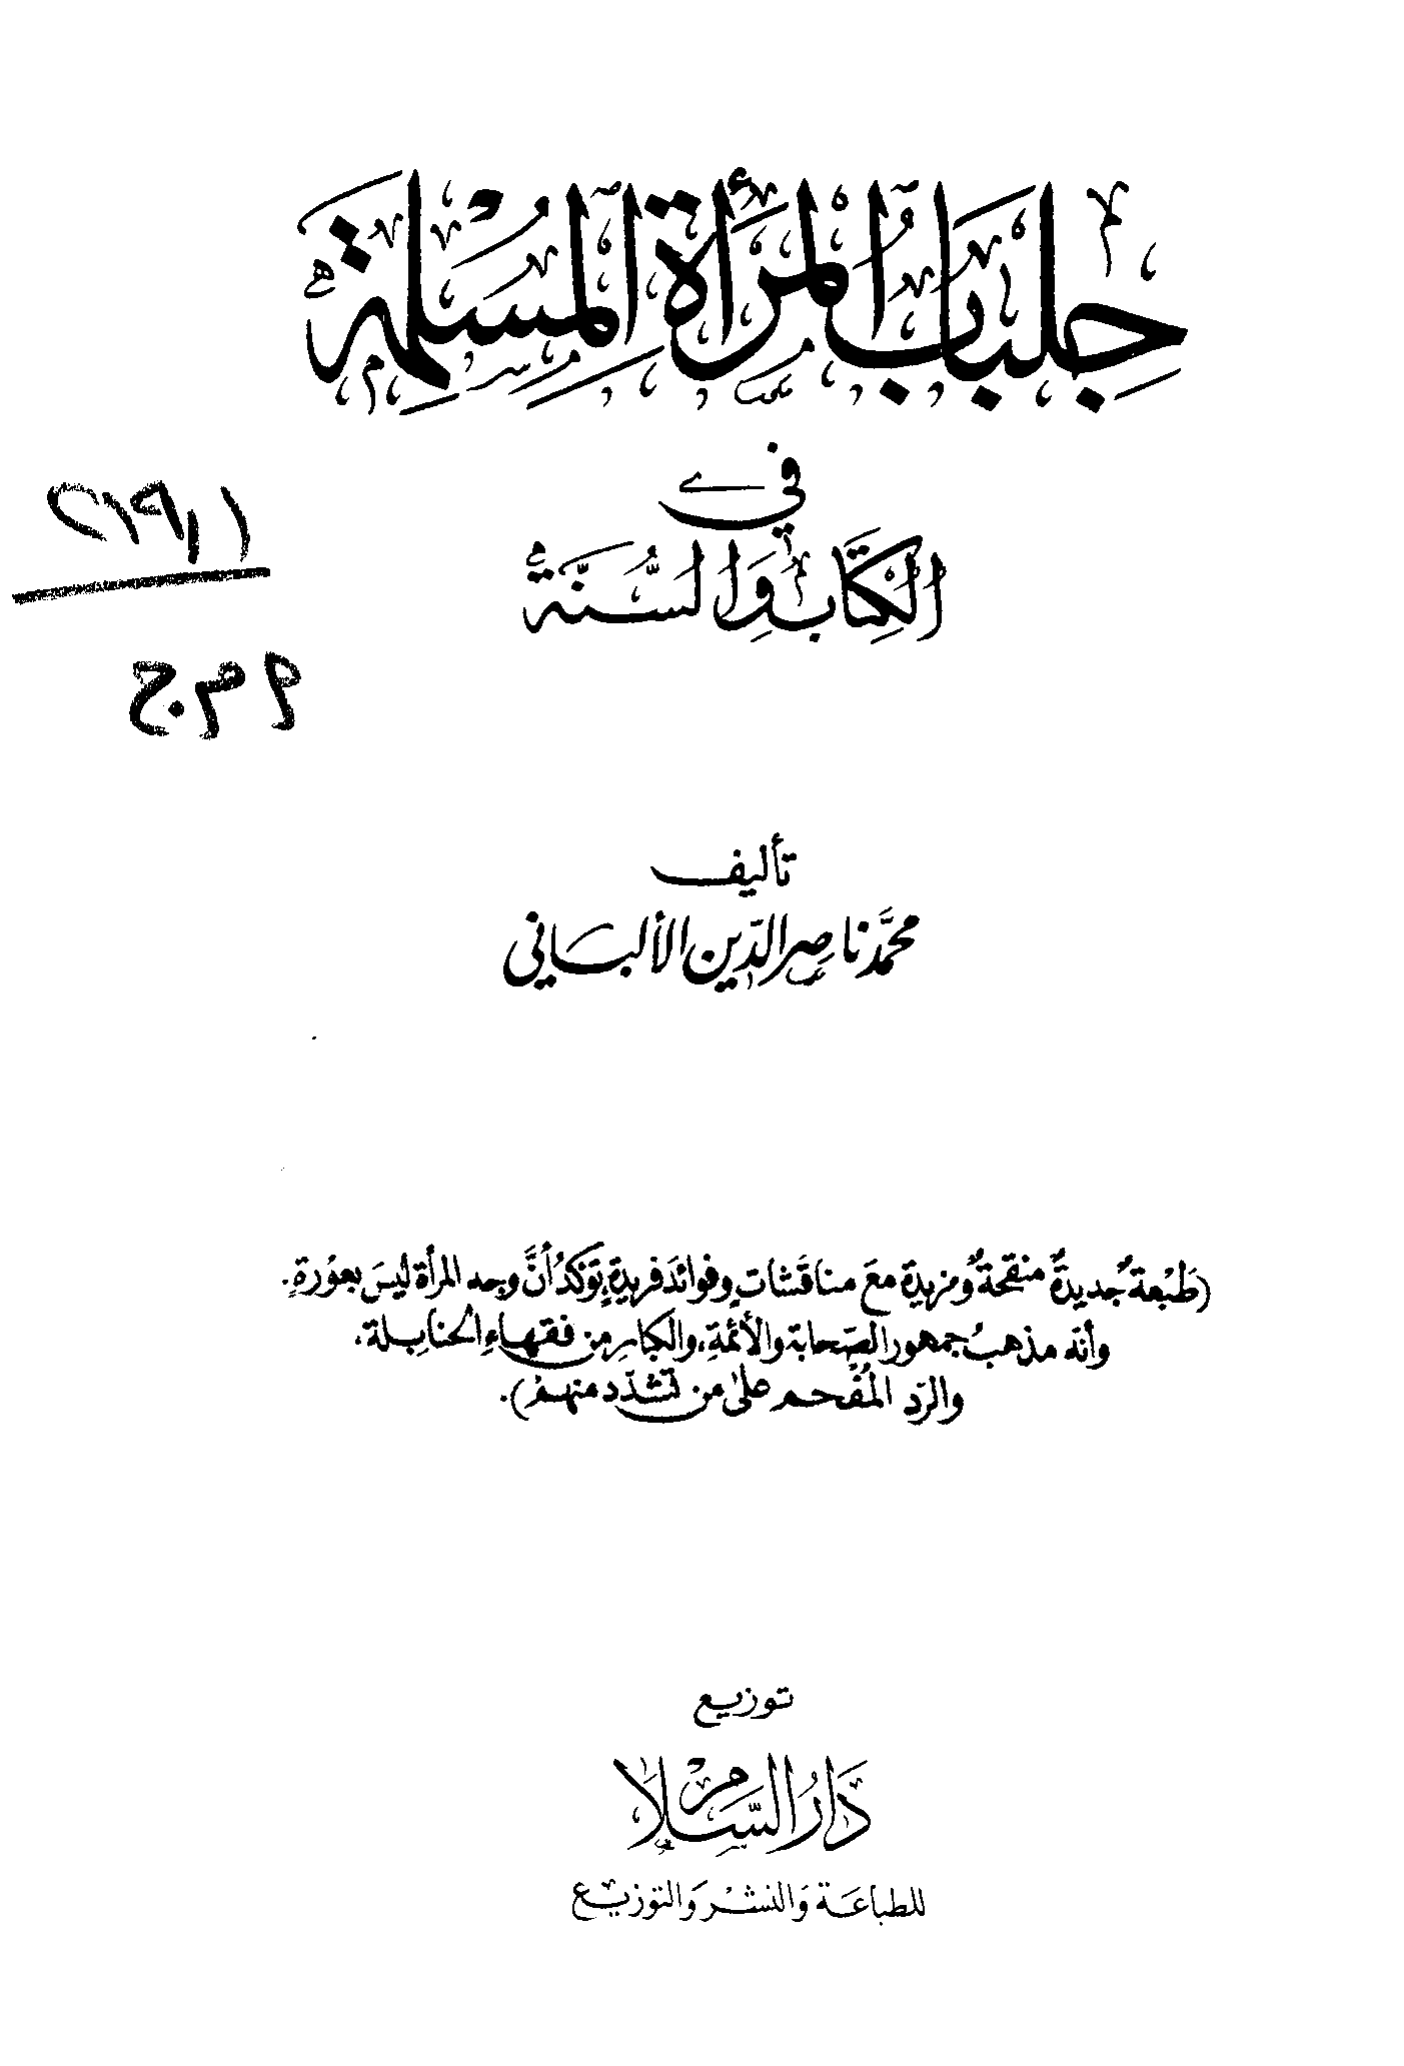 جِلبَابُ المَرأَةِ المُسْلِمَةِ
في
الكِتَابِ وَالسُّنَّةِ
٢١٩,١
م م ج
تأليف
محمَّد ناصر الدّين الألبَاني
(طَبْعة جديدةٌ منقحةٌ ومزيدة معَ مناقَشاتٍ وفوائدَ فريدةٍ، تؤكدُ أنَّ وجه المرأة ليسَ بعورةٍ.
وأنه مذهبُ جمهور الصّحابة والأئمةِ، والكبار من فقهاءِ الحنابِلة.
والرّد المُفْحم على من تشدّد منهم).
توزيع
دَارُ السَّلَام
للطباعَة وَالنشْر وَالتوزيع